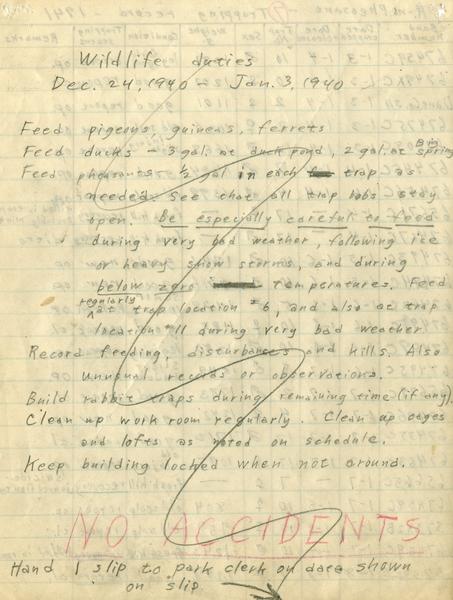 Wildlife duties
Dec. 24, 1940 - Jan. 3, 1940
Feed pigeons, guineas, ferrets
Feed ducks - 3 gal. at duck pond, 2 gal. at Big Spring
Feed pheasants 1/2 gal in each trap as
needed. See that all trap bobs stay
open. Be especially careful to feed
during very bad weather, following ice
or heavy snow storms, and during
below zero temperatures. Feed
regularly at trap location #6, and also at trap
location #11 during very bad weather.
Record feeding, disturbances and kills. Also
unusual records or observations.
Build rabbit traps during remaining time (if any).
Clean up work room regularly. Clean up cages
and lofts as noted on schedule.
Keep building locked when not around.
NO ACCIDENTS
Hand 1 slip to park clerk on date shown
on slip